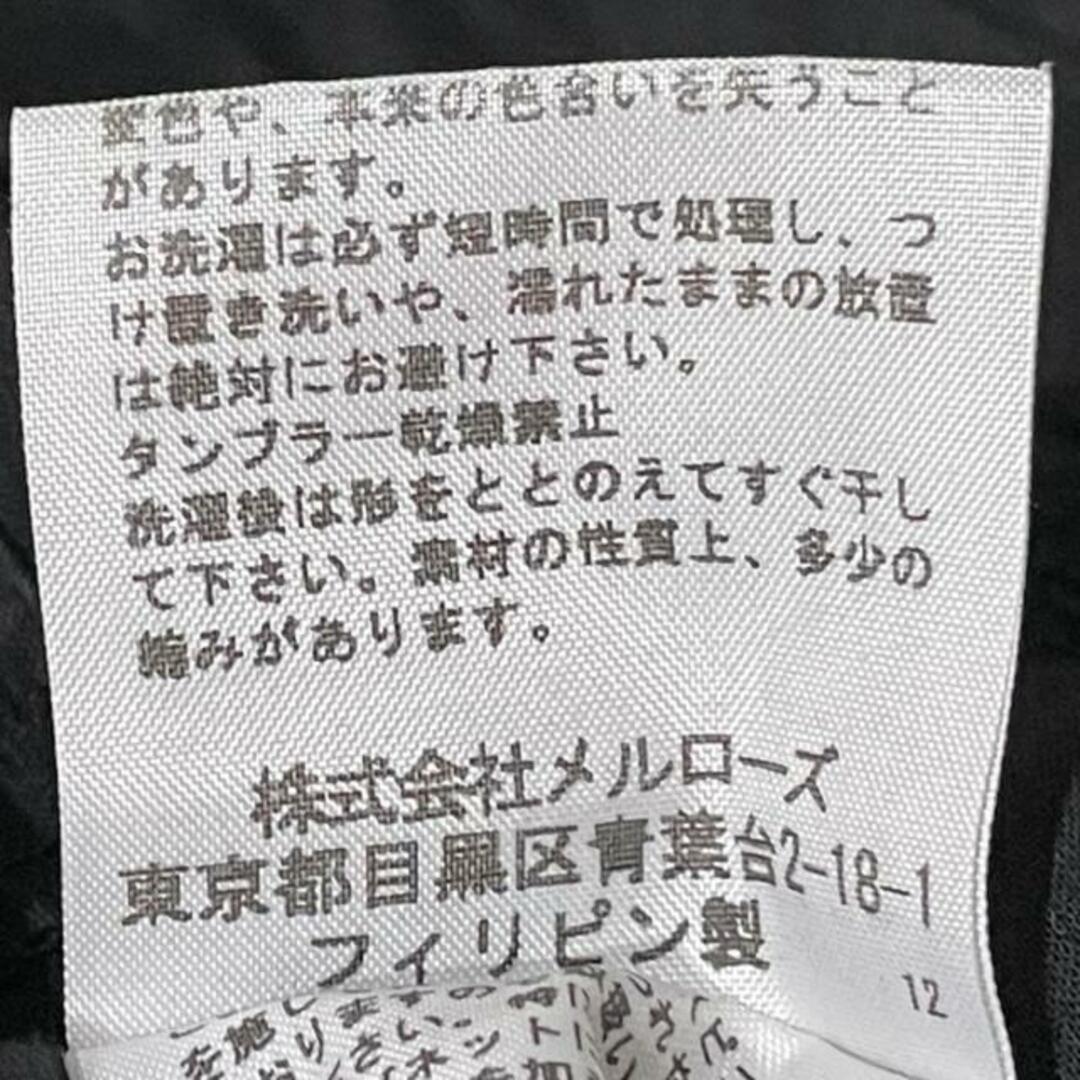 色や、本来の色合いを失うこと
があります。
お洗濯は必ず短時間で処理し、つ
け置き洗いや、濡れたままの放置
は絶対にお避け下さい。
タンブラー乾燥禁止
洗濯後は形をととのえてすぐ干し
て下さい。素材の性質上、多少の
縮みがあります。
株式会社メルローズ
東京都目黒区青葉台2-18-1
フィリピン製
12